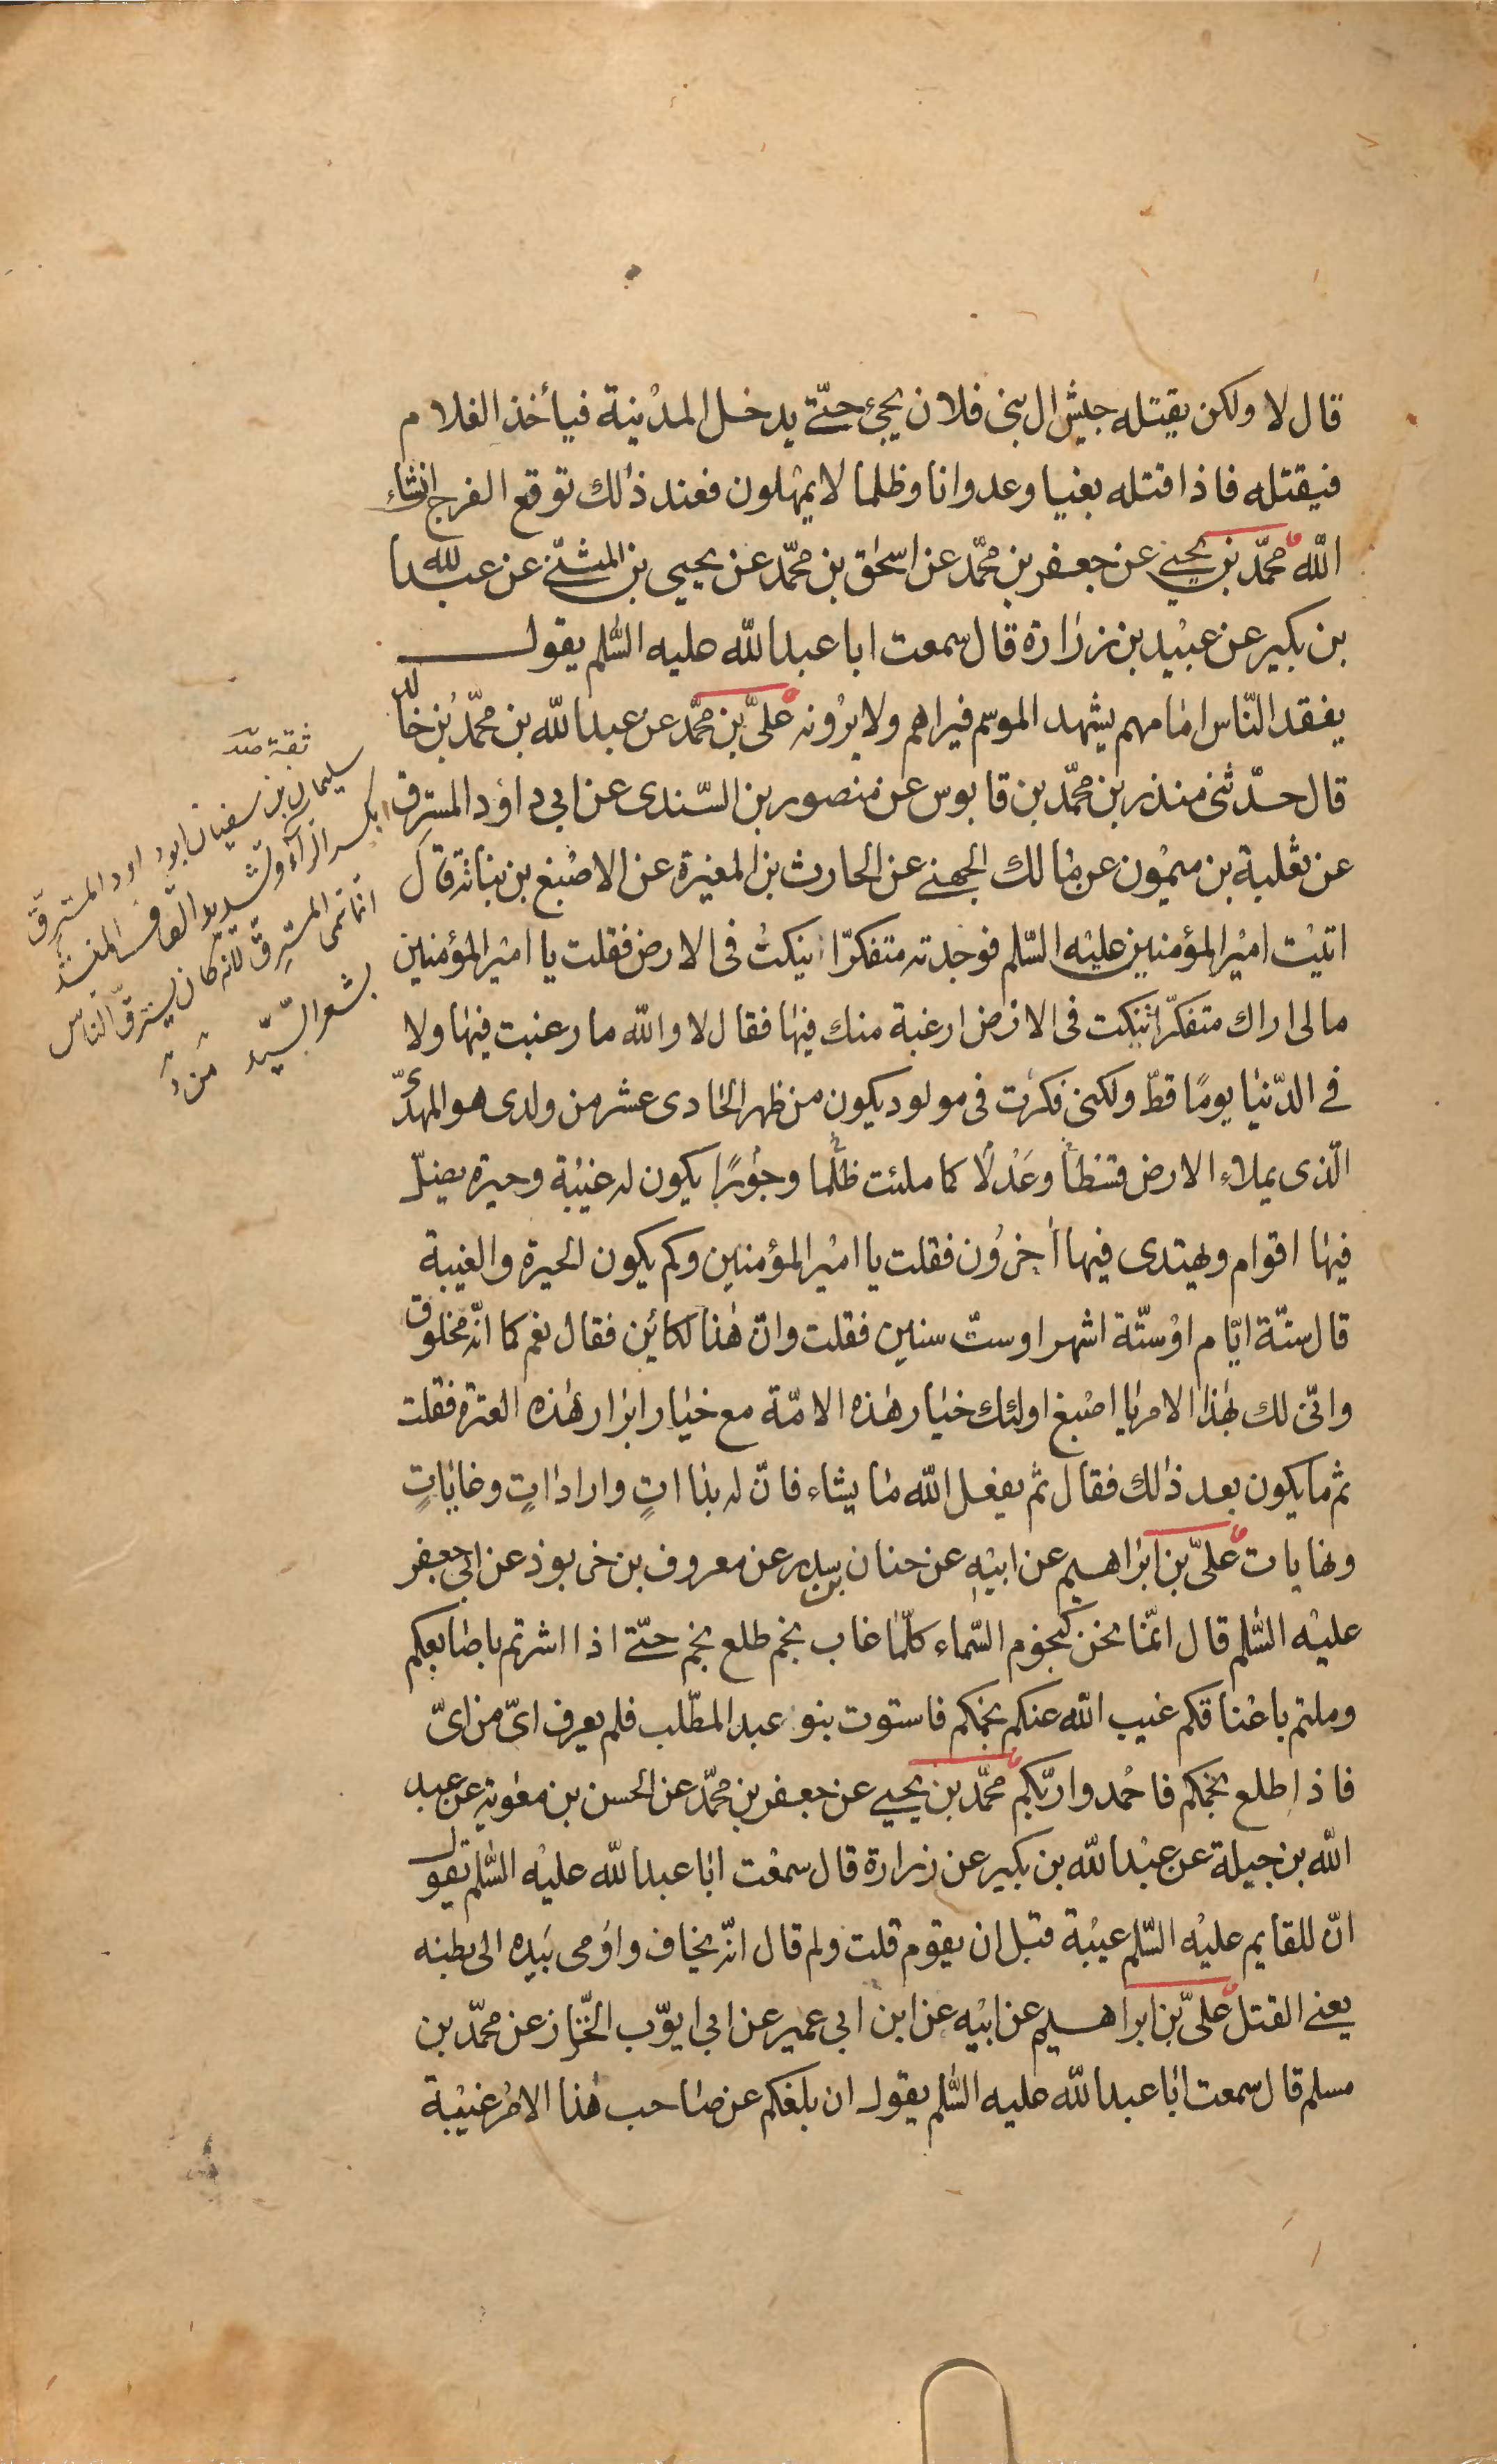 قال لا ولكن يقتله جيش ال بنى فلان يجئ حتّى يدخل المدينة فيأخذ الغلام
فيقتله فاذا قتله بغيا وعدوانا وظلما لا يمهلون فعند ذلك توقع الفرج انشاء
اللّه محمّد بن يحيى عن جعفر بن محمّد عن اسحٰق بن محمّد عن يحيى بن المثنّى عن عبد الله
بن بكير عن عبيد بن زرارة قال سمعت ابا عبد اللّه عليه السّلم يقول
يفقد النّاس امامهم يشهد الموسم فيراهم ولا يرونه علىّ بن محمّد عن عبد اللّه بن محمّد بن خالد
قال حدّثنى منذر بن محمّد بن قابوس عن منصور بن السّندى عن ابى داود المسترق
عن ثعلبة بن ميمون عن مالك الجهنى عن الحارث بن المغيرة عن الاصبغ بن نباتة قال
اتيت امير المؤمنين عليه السّلم فوجدته متفكرّا ينكت فى الارض فقلت يا امير المؤمنين
مالى اراك متفكرّا تنكت فى الارض ارغبة منك فيها فقال لا واللّه ما رغبت فيها ولا
فى الدّنيا يومًا قطّ ولكنى فكرت فى مولود يكون من ظهر الحادى عشر من ولدى هو المهدىّ
الّذى يملاء الارض قسْطاً وعَدْلًا كما ملئت ظلْما وجورًا يكون له غيبة وحيرة يضلّ
فيها اقوام ويهتدى فيها أخرون فقلت يا امير المؤمنين وكم يكون الحيرة والغيبة
قال ستّة ايّام او ستّة اشهر او ستّ سنين فقلت وانّ هذا لكائن فقال نعم كما انّه مخلوق
وانّى لك بهذا الامر يا اصبغ اولئك خيار هذه الامّة مع خيار ابرار هذه العترة فقلت
ثم ما يكون بعد ذلك فقال ثم يفعل اللّه ما يشاء فانّ له بداات وارادات وغايات
ونهايات علىّ بن ابراهيم عن ابيه عن حنان بن سدير عن معروف بن خربوذ عن ابى جعفر
عليه السّلم قال انّما نحن كنجوم السّماء كلّما غاب نجم طلع نجم حتّى اذا اشرتم باصابعكم
وملتم باعناقكم غيب اللّه عنكم نجمكم فاستوت بنو عبد المطّلب فلم يعرف اىّ من اىّ
فاذا طلع نجمكم فاحمدوا ربّكم محمّد بن يحيى عن جعفر بن محمّد عن الحسن بن معوية عن عبد
اللّه بن جبلة عن عبد اللّه بن بكير عن زرارة قال سمعت ابا عبد اللّه عليه السّلم يقول
انّ للقايم عليه السّلم غيبة قبل ان يقوم قلت ولم قال انّه يخاف واومى بيده الى بطنه
يعنى القتل علىّ بن ابراهيم عن ابيه عن ابن ابى عمير عن ابى ايوّب الخّزاز عن محمّد بن
مسلم قال سمعت ابا عبد اللّه عليه السّلم يقول ان بلغكم عن صاحب هذا الامر غيبة
ثقة
سليمان بن سفيان ابو داود المسترقّ
بكسر الرّاء وتشديد القاف المنشد
انما سمى المسترقّ لانه كان يسترقّ الناس
بشعر السّيّد